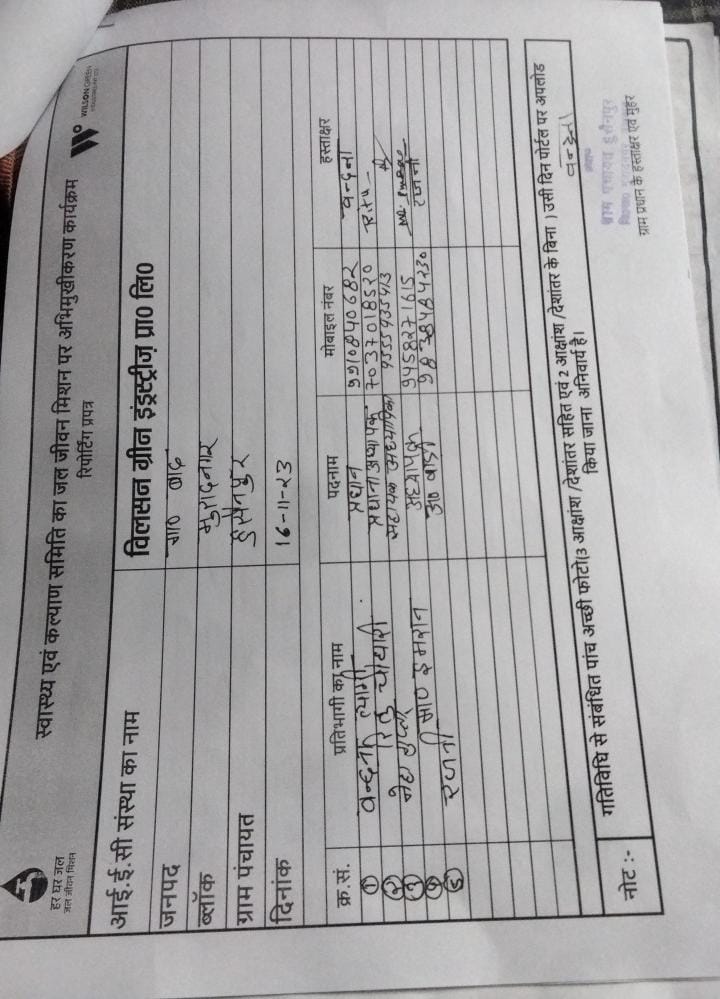 हर घर जल
जल जीवन मिशन
स्वास्थ्य एवं कल्याण समिति का जल जीवन मिशन पर अभिमुखीकरण कार्यक्रम
रिपोर्टिंग प्रपत्र
WILSON GREEN
आई.ई.सी संस्था का नाम विलसन ग्रीन इंड्स्ट्रीज़ प्रा0 लि0
जनपद गा0 बाद
ब्लॉक मुरादनगर
ग्राम पंचायत हुसैनपुर
दिनांक 16-11-23
क्र.सं. प्रतिभागी का नाम पदनाम मोबाइल नंबर हस्ताक्षर
1 वन्दना त्यागी प्रधान 9910840682 वन्दना
2 रितु चौधरी प्रधानाध्यापक 7037018520 Ritu
3 नेहा गुप्ता सहायक अध्यापिका
4 मो0 इमरान अध्यापक 9458271615
5 रजनी आ0 बाड़ी रजनी
नोट :- गतिविधि से संबंधित पांच अच्छी फोटो(3 आक्षांश /देशांतर सहित एवं 2 आक्षांश /देशांतर के बिना ) उसी दिन पोर्टल पर अपलोड
किया जाना अनिवार्य है।
वन्दना
ग्राम पंचायत हुसैनपुर
ग्राम प्रधान के हस्ताक्षर एवं मुहर